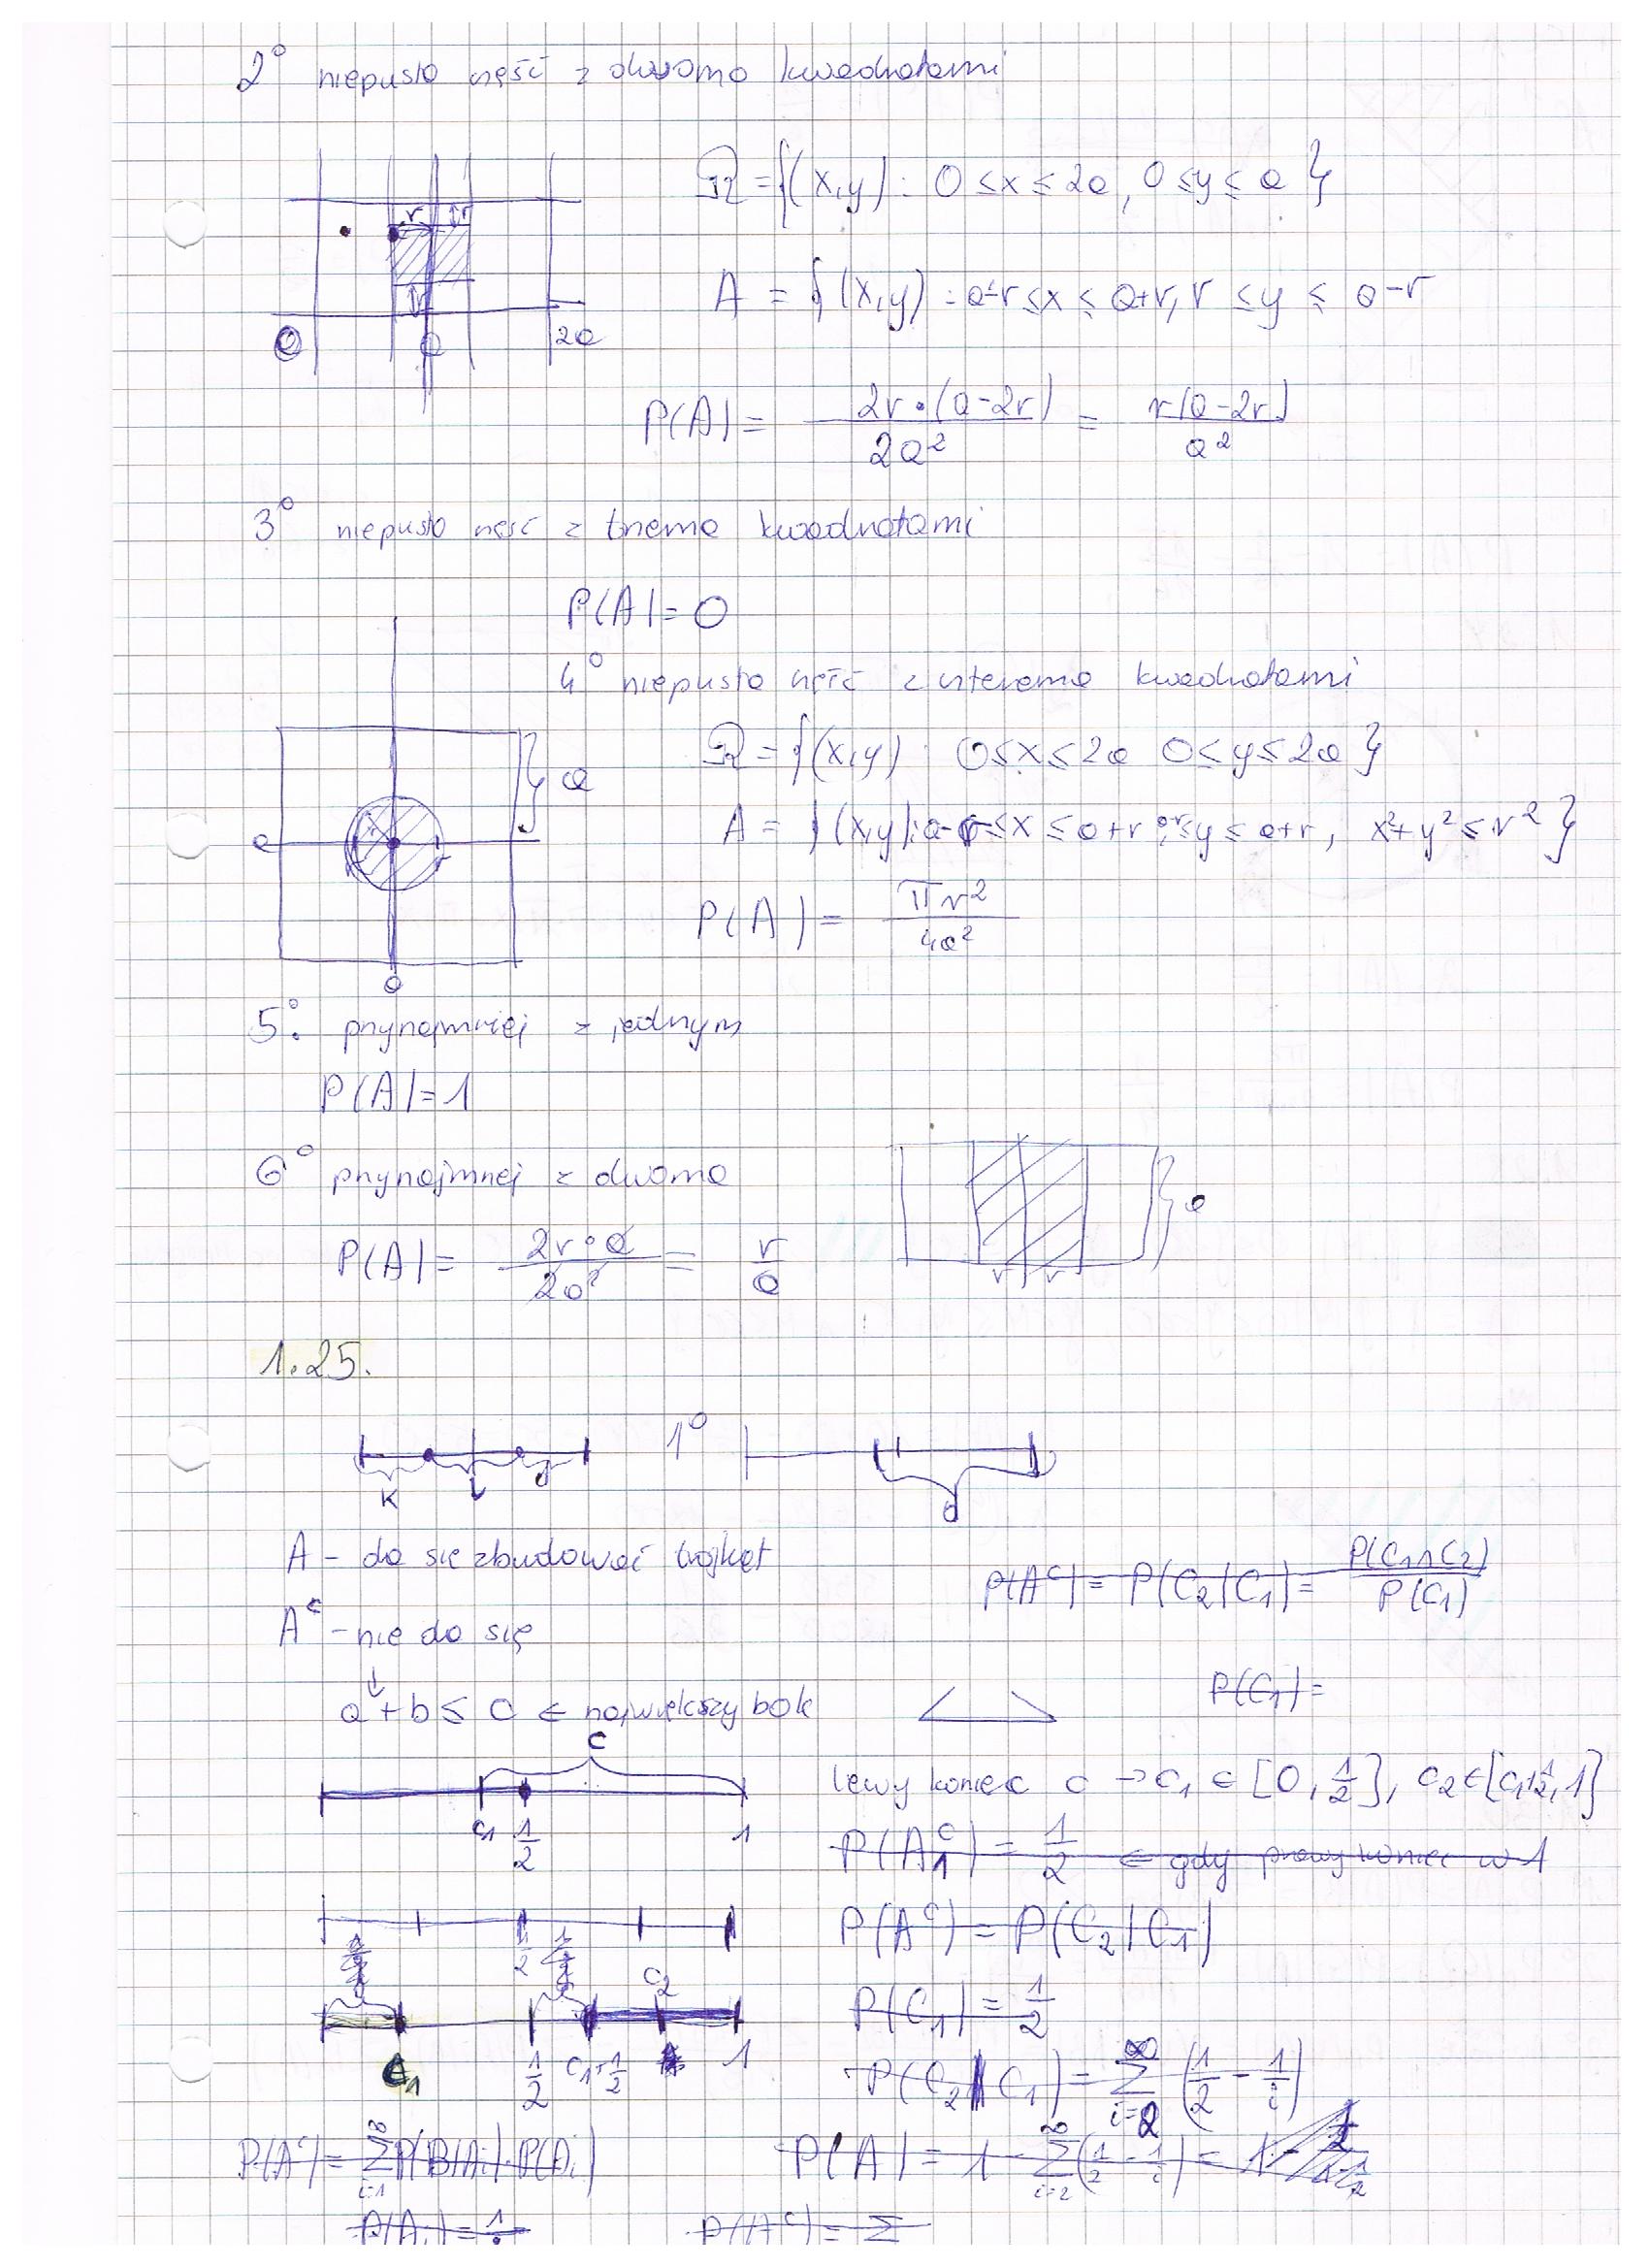 2° niepusta część z dwoma kwadratami
Ω = {(x,y) : 0 ≤ x ≤ 2a, 0 ≤ y ≤ a }
r r
A = {(x,y) : a-r ≤ x ≤ a+r, r ≤ y ≤ a-r
r
0 a 2a
P(A) = 2r·(a-2r) / 2a² = r(a-2r) / a²
3° niepusta część z trzema kwadratami
P(A) = 0
4° niepusta część z czterema kwadratami
Ω = {(x,y) : 0 ≤ x ≤ 2a 0 ≤ y ≤ 2a }
a
A = {(x,y) : a-r ≤ x ≤ a+r, a-r ≤ y ≤ a+r, x²+y² ≤ r² }
a
P(A) = πr² / 4a²
a
5°. przynajmniej z jednym
P(A) = 1
6° przynajmnej z dwoma
a
P(A) = 2r·a / 2a² = r / a
r r
1.25.
1°
K L d
A - da się zbudować trójkąt
P(Aᶜ) = P(C₂|C₁) = P(C₁∩C₂) / P(C₁)
Aᶜ - nie da się
P(C₁) =
a+b ≤ c ← największy bok
c
lewy koniec c → c₁ ∈ [0, 1/2], c₂ ∈ [c₁+1/2, 1]
c₁ 1/2 1
P(A₁ᶜ) = 1/2 ← gdy prawy koniec w 1
P(Aᶜ) = P(C₂|C₁)
1/2
c₂
P(C₁) = 1/2
c₁ 1/2 c₁+1/2 1
P(C₂|C₁) = ∑ i=2 ∞ (1/2 - 1/i)
P(Aᶜ) = ∑ i=1 ∞ P(B|Aᵢ)·P(Aᵢ)
P(A) = 1 - ∑ i=2 ∞ (1/2 - 1/i) = 1 -
P(Aᵢ) = 1
P(Aᶜ) = ∑